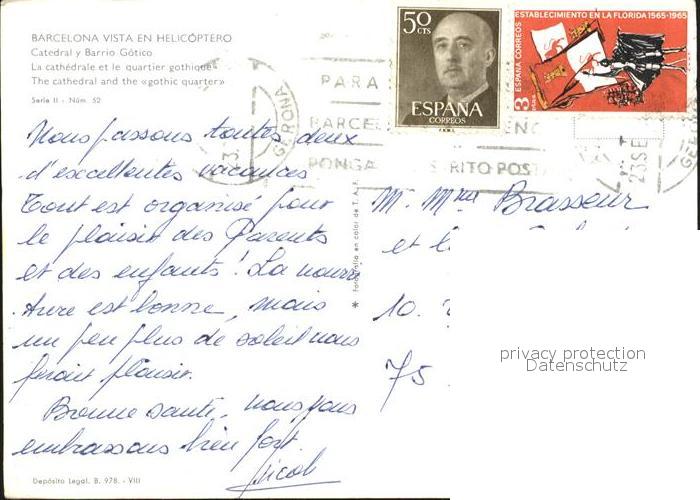 BARCELONA VISTA EN HELICÓPTERO
Catedral y Barrio Gótico
La cathédrale et le quartier gothique
The cathedral and the «gothic quarter»
Serie II - Núm. 52
50
CTS
ESPAÑA
CORREOS
ESTABLECIMIENTO EN LA FLORIDA 1565-1965
3
ESPAÑA CORREOS
PARA
PARCEL
PONGA
RITO POST
GERONA
23 SE
Nous passons toutes deux
d'excellentes vacances
Tout est organisé pour
le plaisir des Parents
et des enfants! La nourri
ture est bonne, mais
un peu plus de soleil nous
ferait plaisir.
Bonne santé, nous vous
embrassons bien fort.
Nicole
M. Mme Brasseur
et
10.
75
* Fotografía en color de T.A.F.
Depósito Legal. B. 978. - VIII
privacy protection
Datenschutz